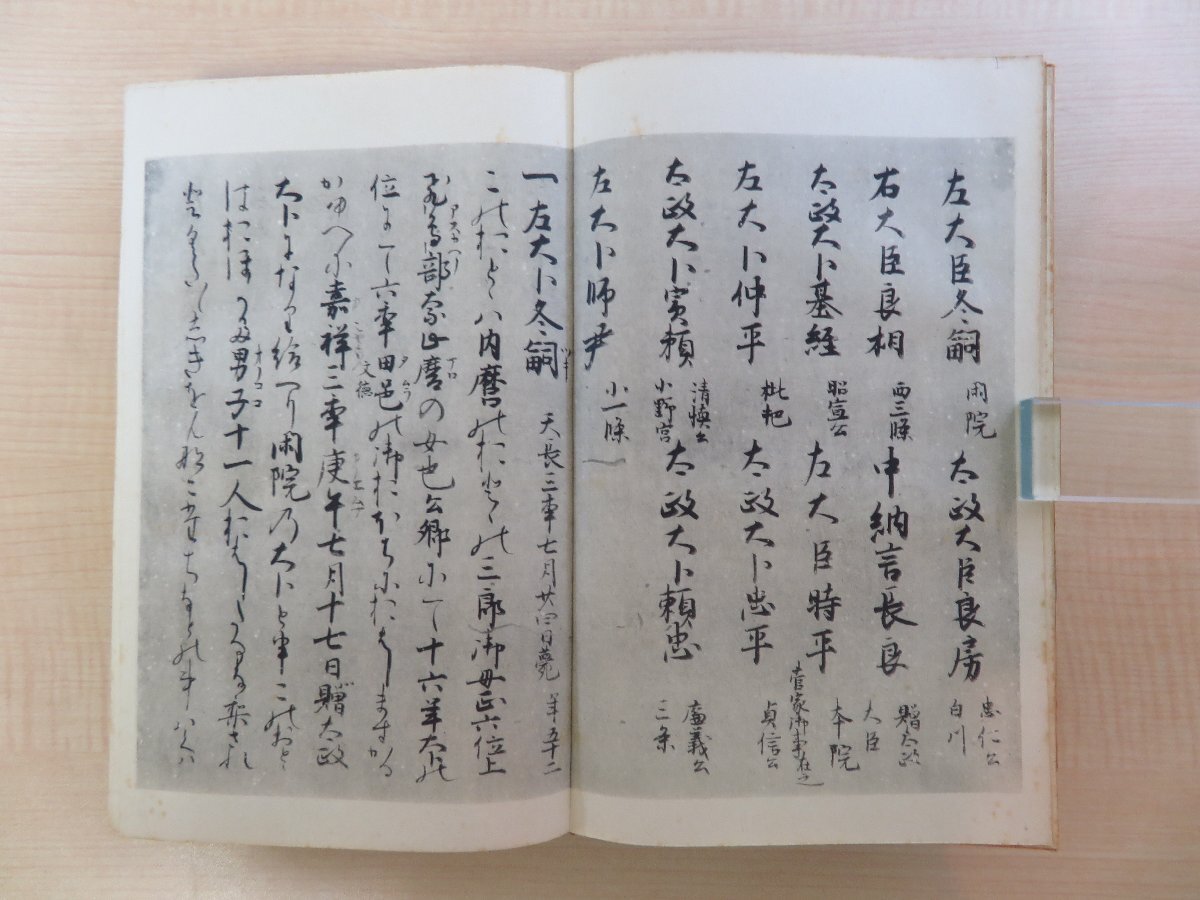 左大臣冬嗣 閑院 太政大臣良房 忠仁公 白川
右大臣良相 西三條 中納言長良 贈太政大臣
太政大卜基経 昭宣公 左大臣時平 本院 菅家御事在之
左大卜仲平 枇杷 太政大卜忠平 貞信公
太政大卜実頼 清慎公 小野宮 太政大卜頼忠 廉義公 三条
左大卜師尹 小一條
一左大卜冬嗣 天長三年七月廿四日薨 年五十二
このおとゝハ内麿のおとゝの三郎御母正六位上
飛鳥部奈止麿の女也公卿にて十六年大臣の
位にて六年田邑の御おほちにおはしますかる
かゆへに嘉祥三年庚午七月十七日贈太政
大卜になり給へり閑院の大卜と申このおとゝ
はおほ 男子十一人おはしたるなりされ